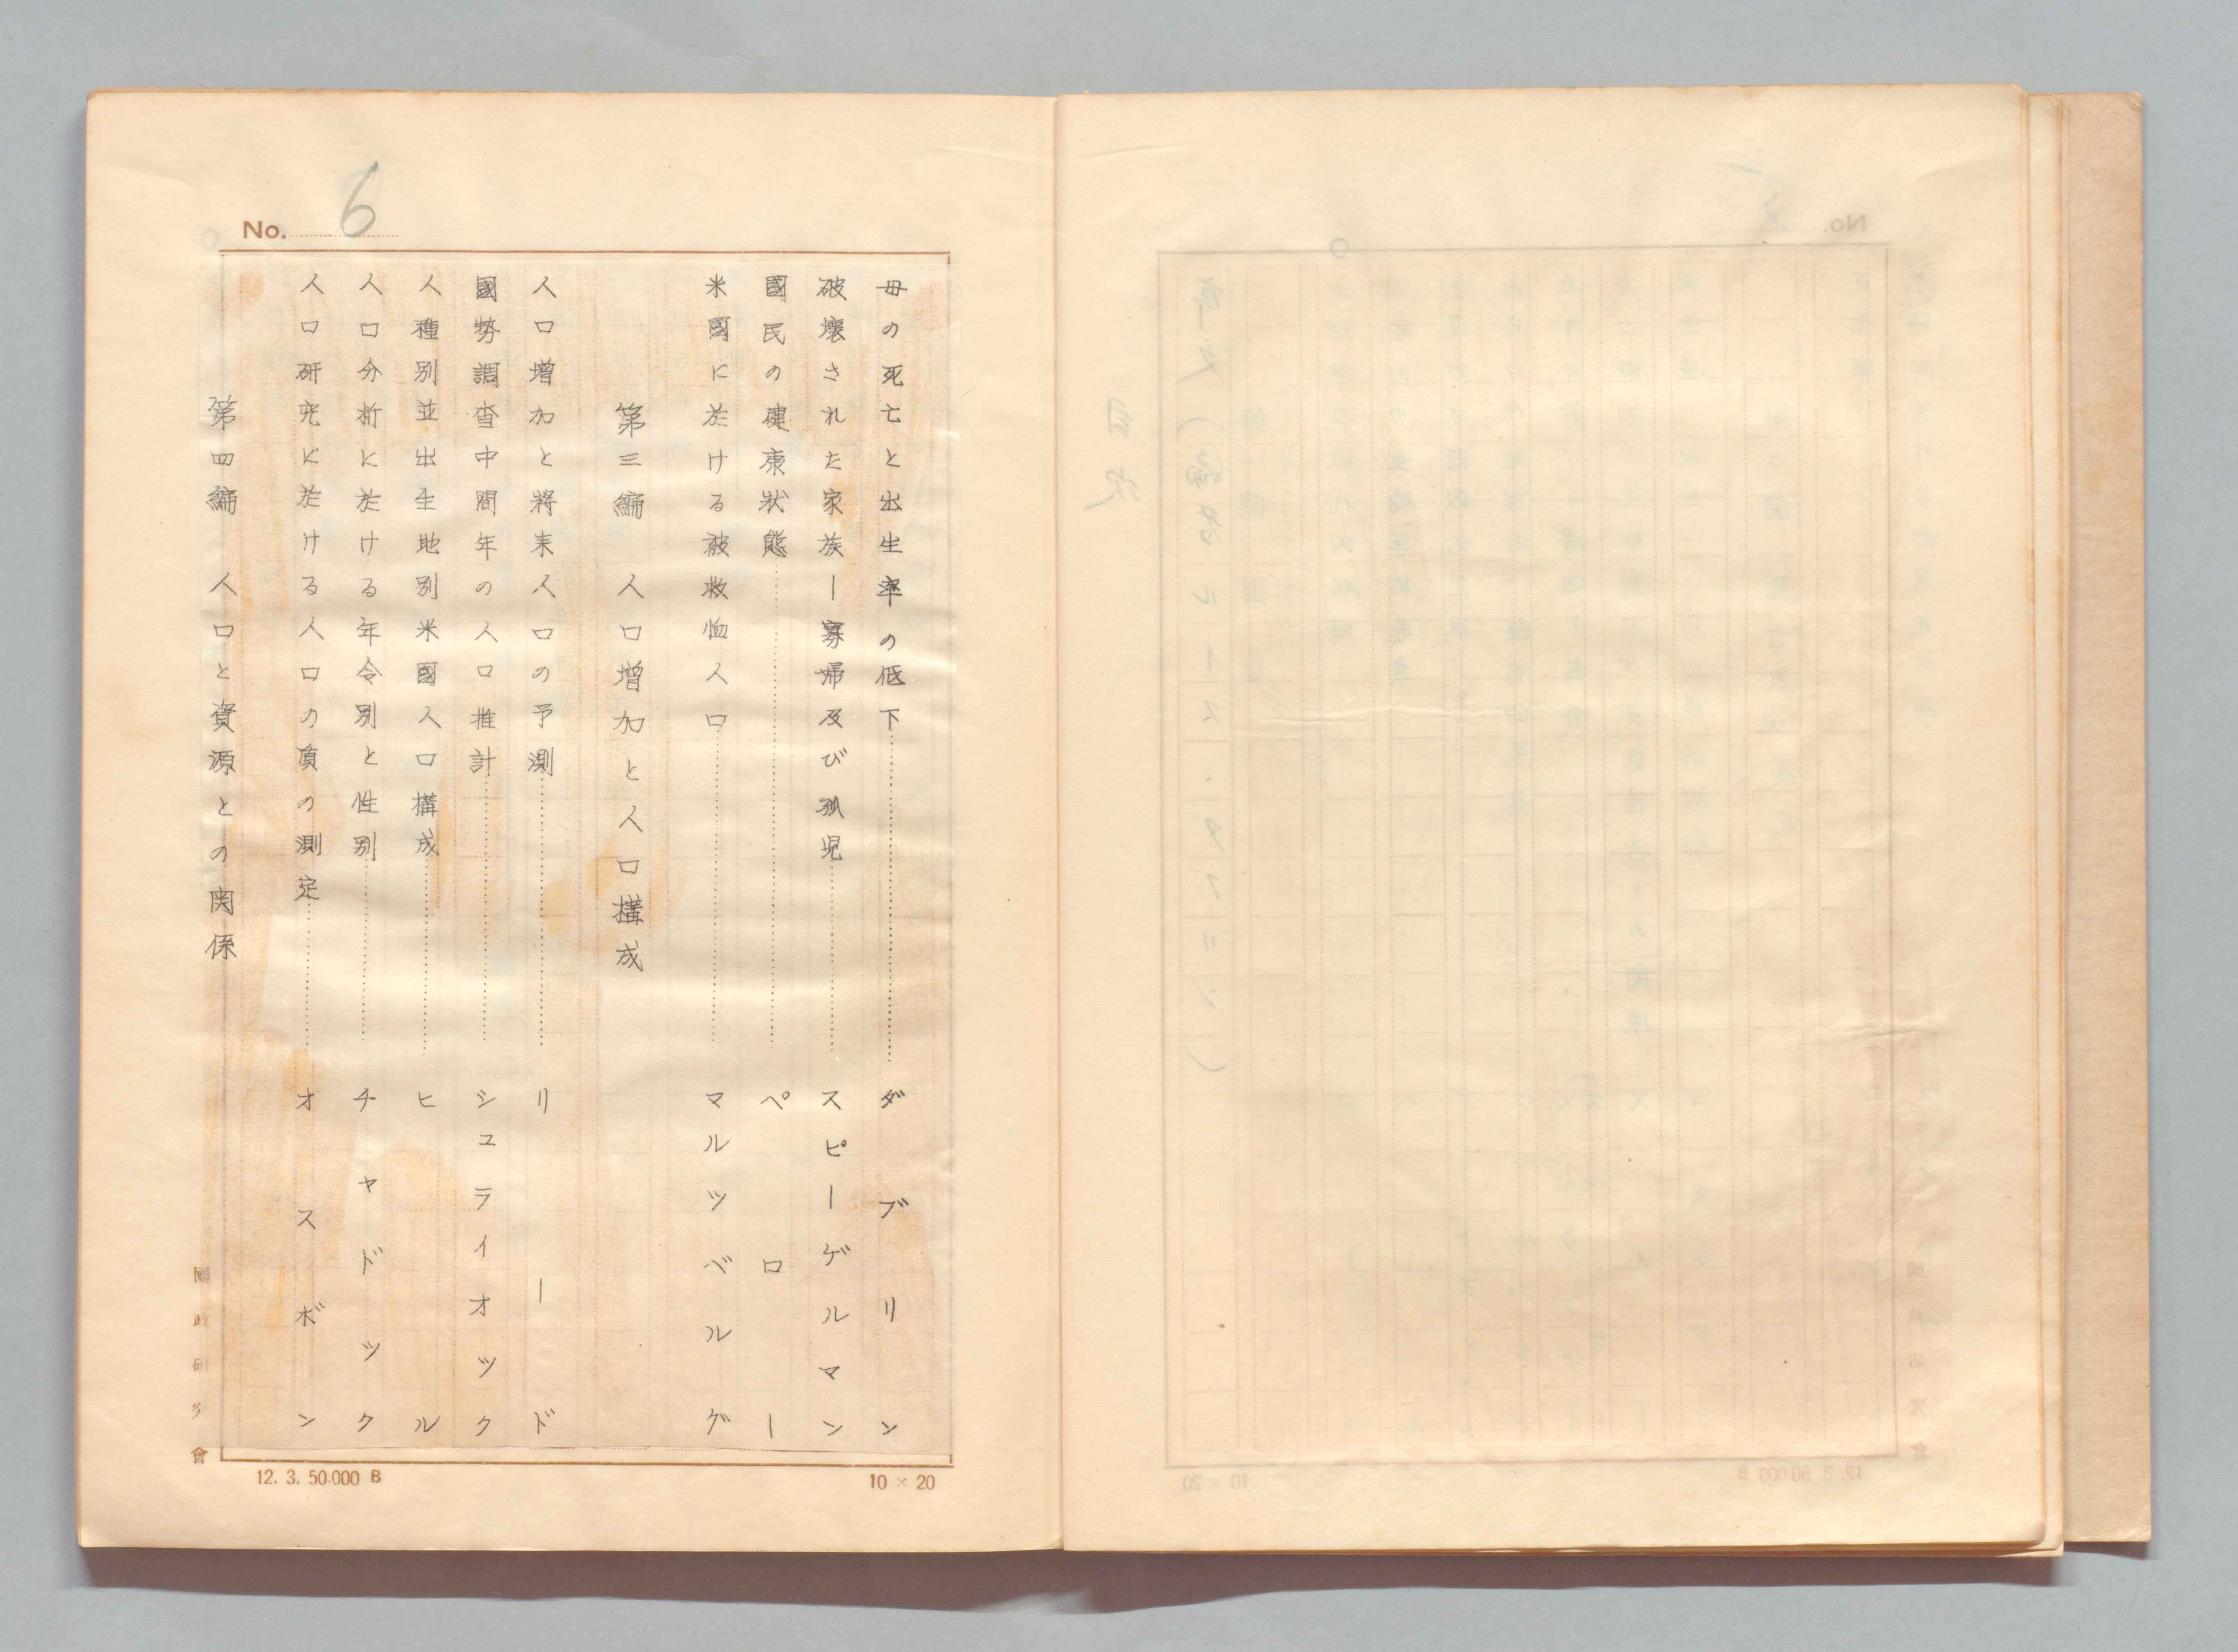 No. 6
母の死亡と出生率の低下………ダブリン
破壊された家族ー寡婦及び孤児………スピーゲルマン
國民の健康状態………ペロー
米國に於ける被救恤人口………マルツベルグ
第三編　人口増加と人口構成
人口増加と將来人口の予測………リード
國勢調査中間年の人口推計………シュライオック
人種別並出生地別米國人口構成………ヒル
人口分析に於ける年令別と性別………チャドツック
人口研究に於ける人口の質の測定………オスボン
第四編　人口と資源との関係
國政研究會
12. 3. 50.000 B
10 × 20